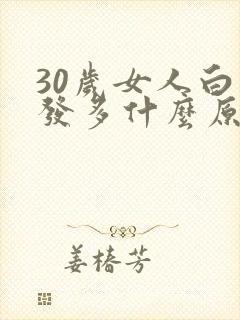 30歲女人白
發多什麼原
姜椿芳